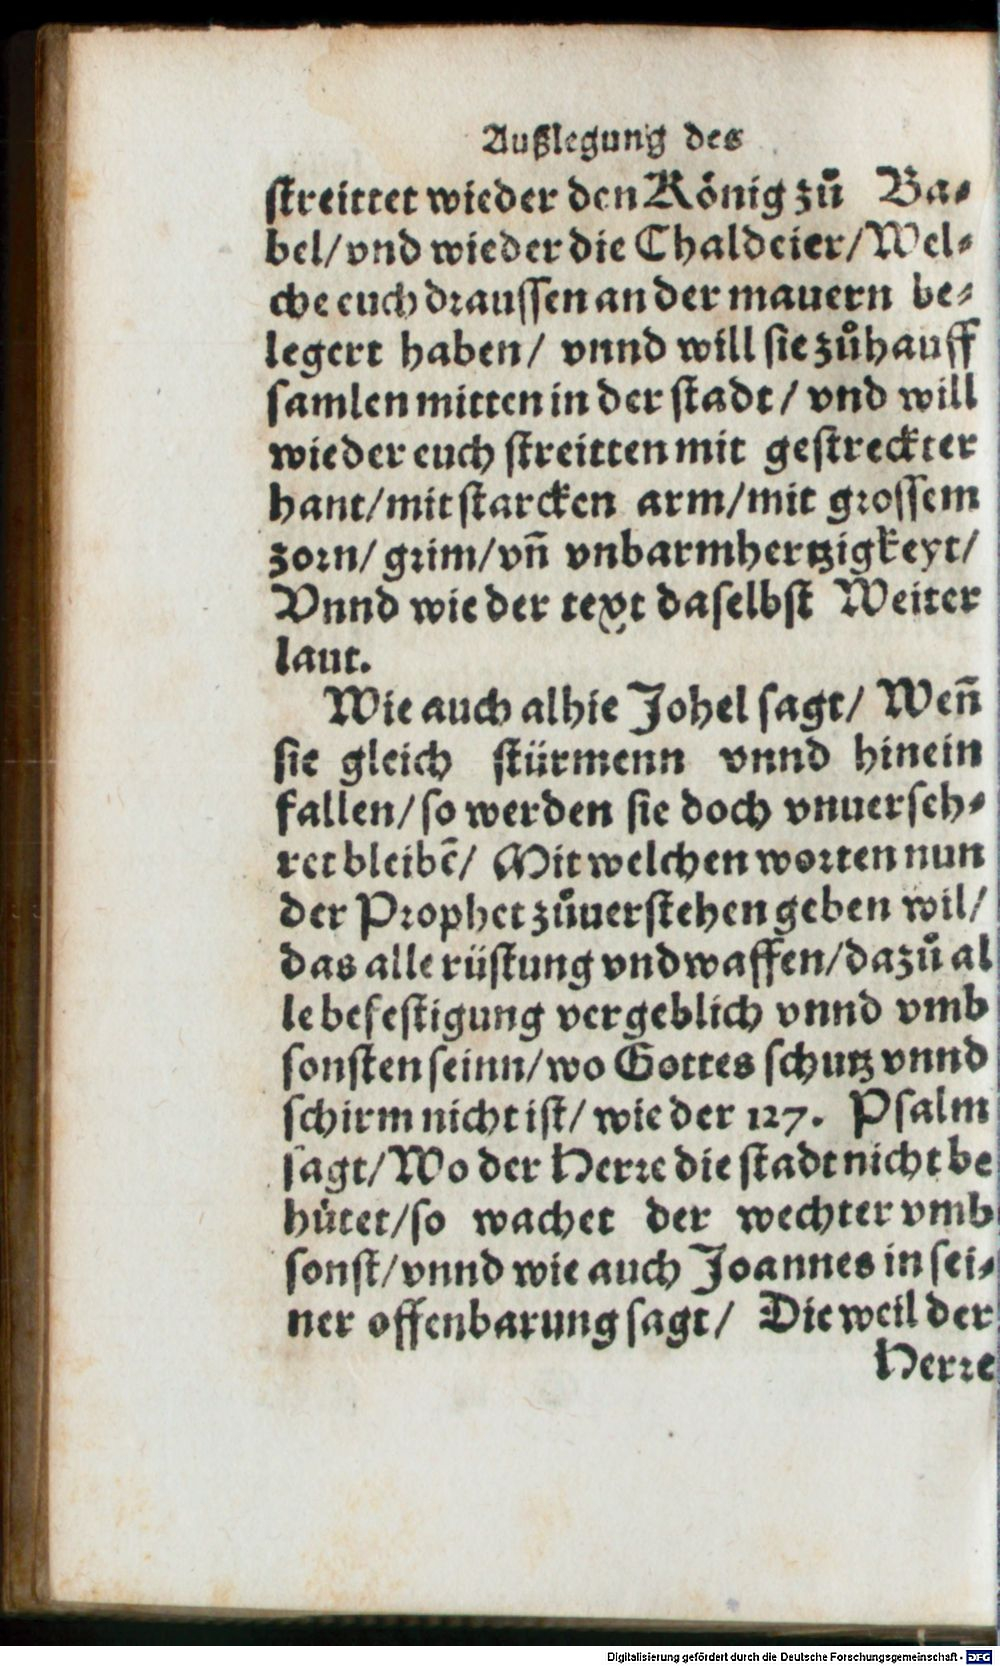 Außlegung des
streittet wieder den König zů Ba⸗
bel/vnd wieder die Chaldeier/Wel⸗
che euch draussen an der mauern be⸗
legert haben/ vnnd will sie zůhauff
samlen mitten in der stadt/ vnd will
wieder euch streitten mit gestreckter
hant/mit starcken arm/mit grossem
zorn/ grim/vn̄ vnbarmhertzigkeyt/
Vnnd wie der text daselbst Weiter
laut.
Wie auch alhie Johel sagt/ Wen̄
sie gleich stürmenn vnnd hinein
fallen/so werden sie doch vnuerseh⸗
ret bleibē/ Mit welchen worten nun
der Prophet zůuerstehen geben wil/
das alle rüstung vnd waffen/dazů al
le befestigung vergeblich vnnd vmb
sonsten seinn/wo Gottes schutz vnnd
schirm nicht ist/ wie der 127. Psalm
sagt/Wo der Herre die stadt nicht be
hütet/so wachet der wechter vmb
sonst/vnnd wie auch Joannes in sei⸗
ner offenbarung sagt/ Die weil der
Herre
Digitalisierung gefördert durch die Deutsche Forschungsgemeinschaft - DFG